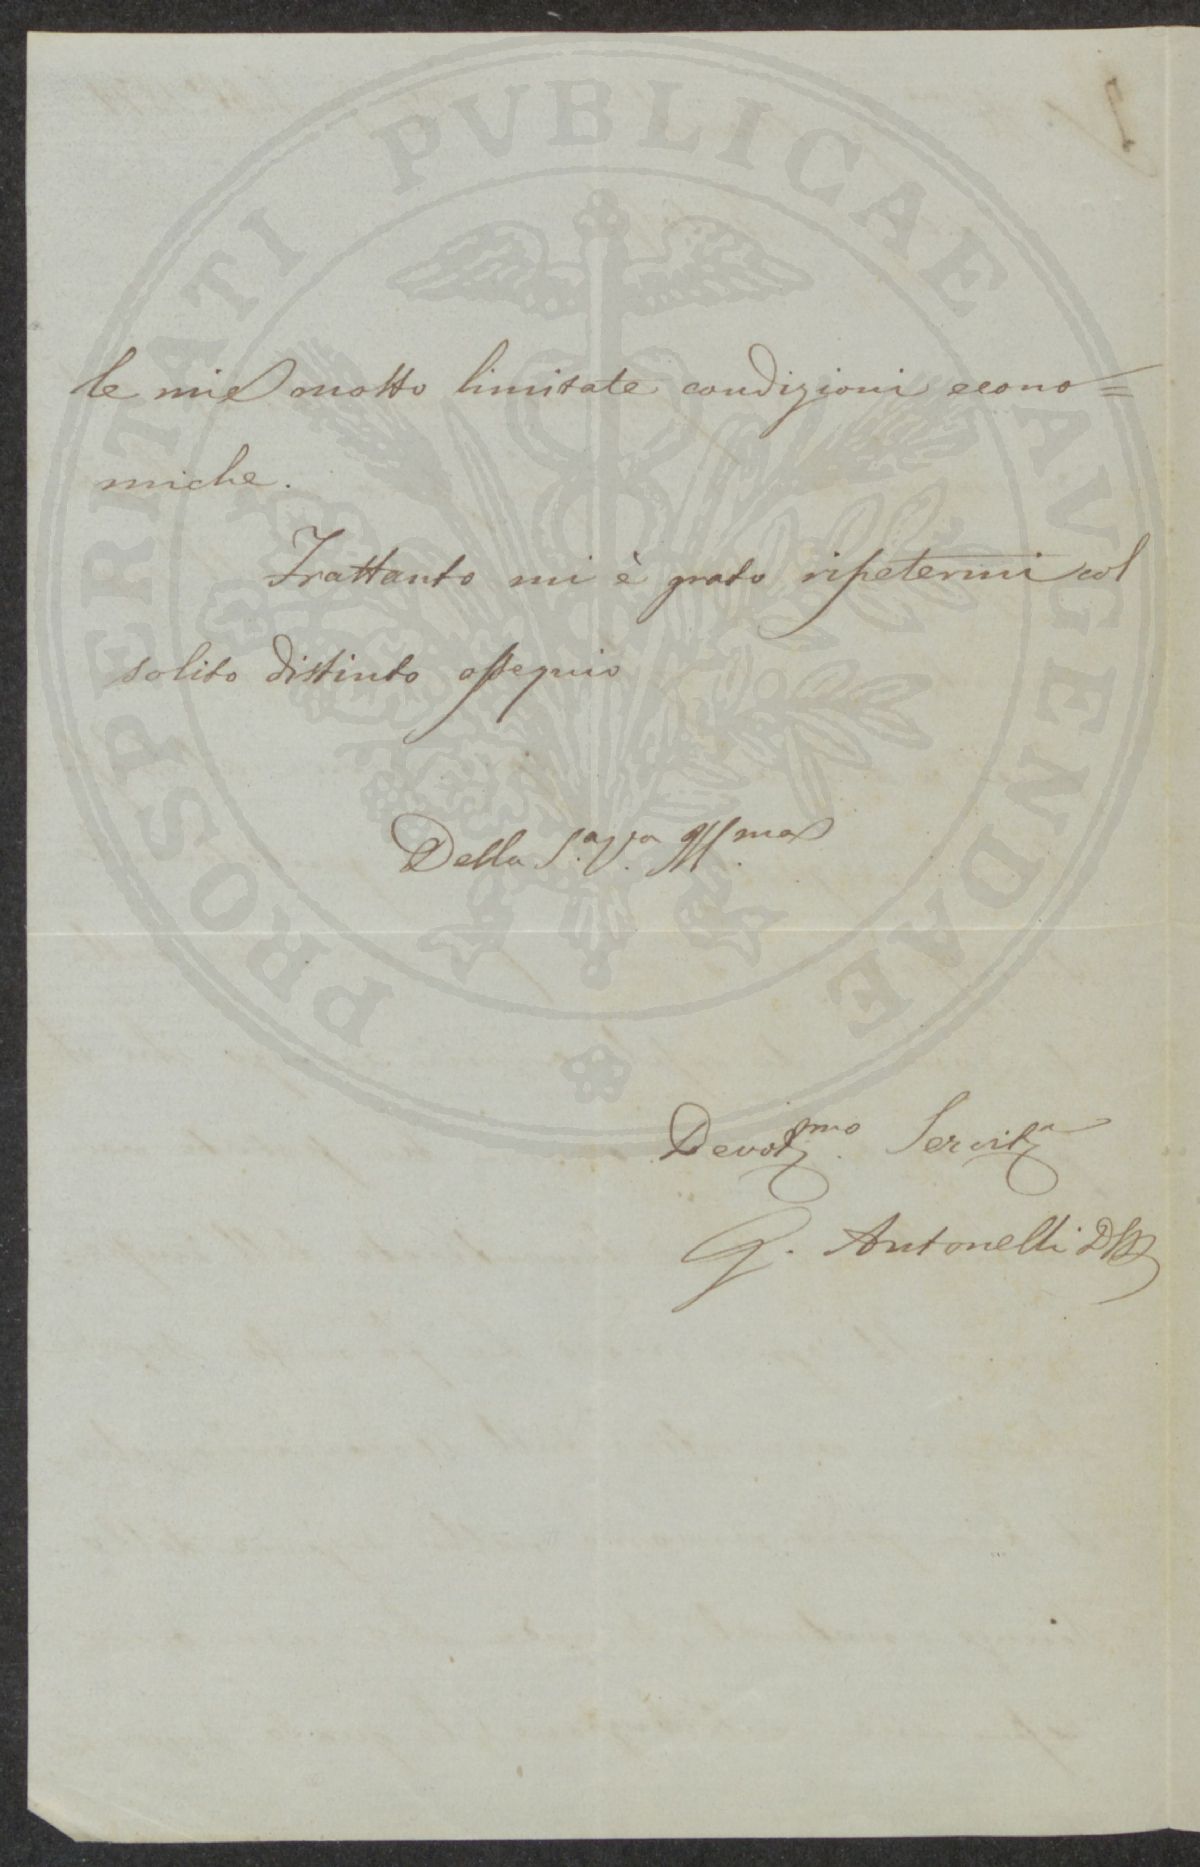 PROSPERITATI PVBLICAE AVGENDAE
le mie molto limitate condizioni econo=
miche.
Trattanto mi è grato ripetermi col
solito distinto ossequio
Della S.a V.a Ill.ma
Devot.mo Servit.e
G. Antonelli